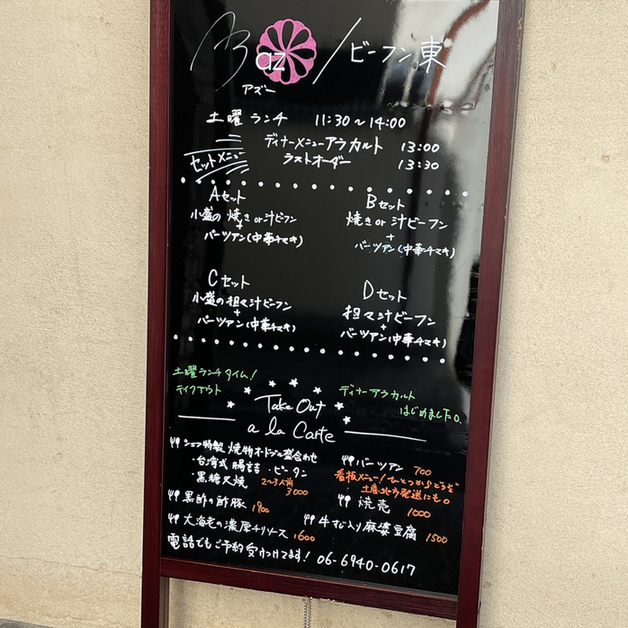 az / ビーフン東
アズー
土曜ランチ 11:30～14:00
ディナーメニューアラカルト 13:00
ラストオーダー 13:30
セットメニュー
Aセット
小盛の焼きor汁ビーフン
+
バーツアン(中華チマキ)
Bセット
焼きor汁ビーフン
+
バーツアン(中華チマキ)
Cセット
小盛の担々汁ビーフン
+
バーツアン(中華チマキ)
Dセット
担々汁ビーフン
+
バーツアン(中華チマキ)
土曜ランチタイム!
テイクアウト
ディナーアラカルト
はじめました。
Take Out
a la Carte
シェフ特製 焼物オードブル盛合わせ
・台湾式腸詰・ピータン
・黒糖叉焼 2～3人前
3000
黒酢の酢豚 1900
大海老の濃厚チリソース 1600
バーツアン 700
看板メニュー!ひとつからどうぞ
土産、地方発送にも。
焼売 1000
牛すじ入り麻婆豆腐 1500
電話でもご予約受けつけてます! 06-6940-0617